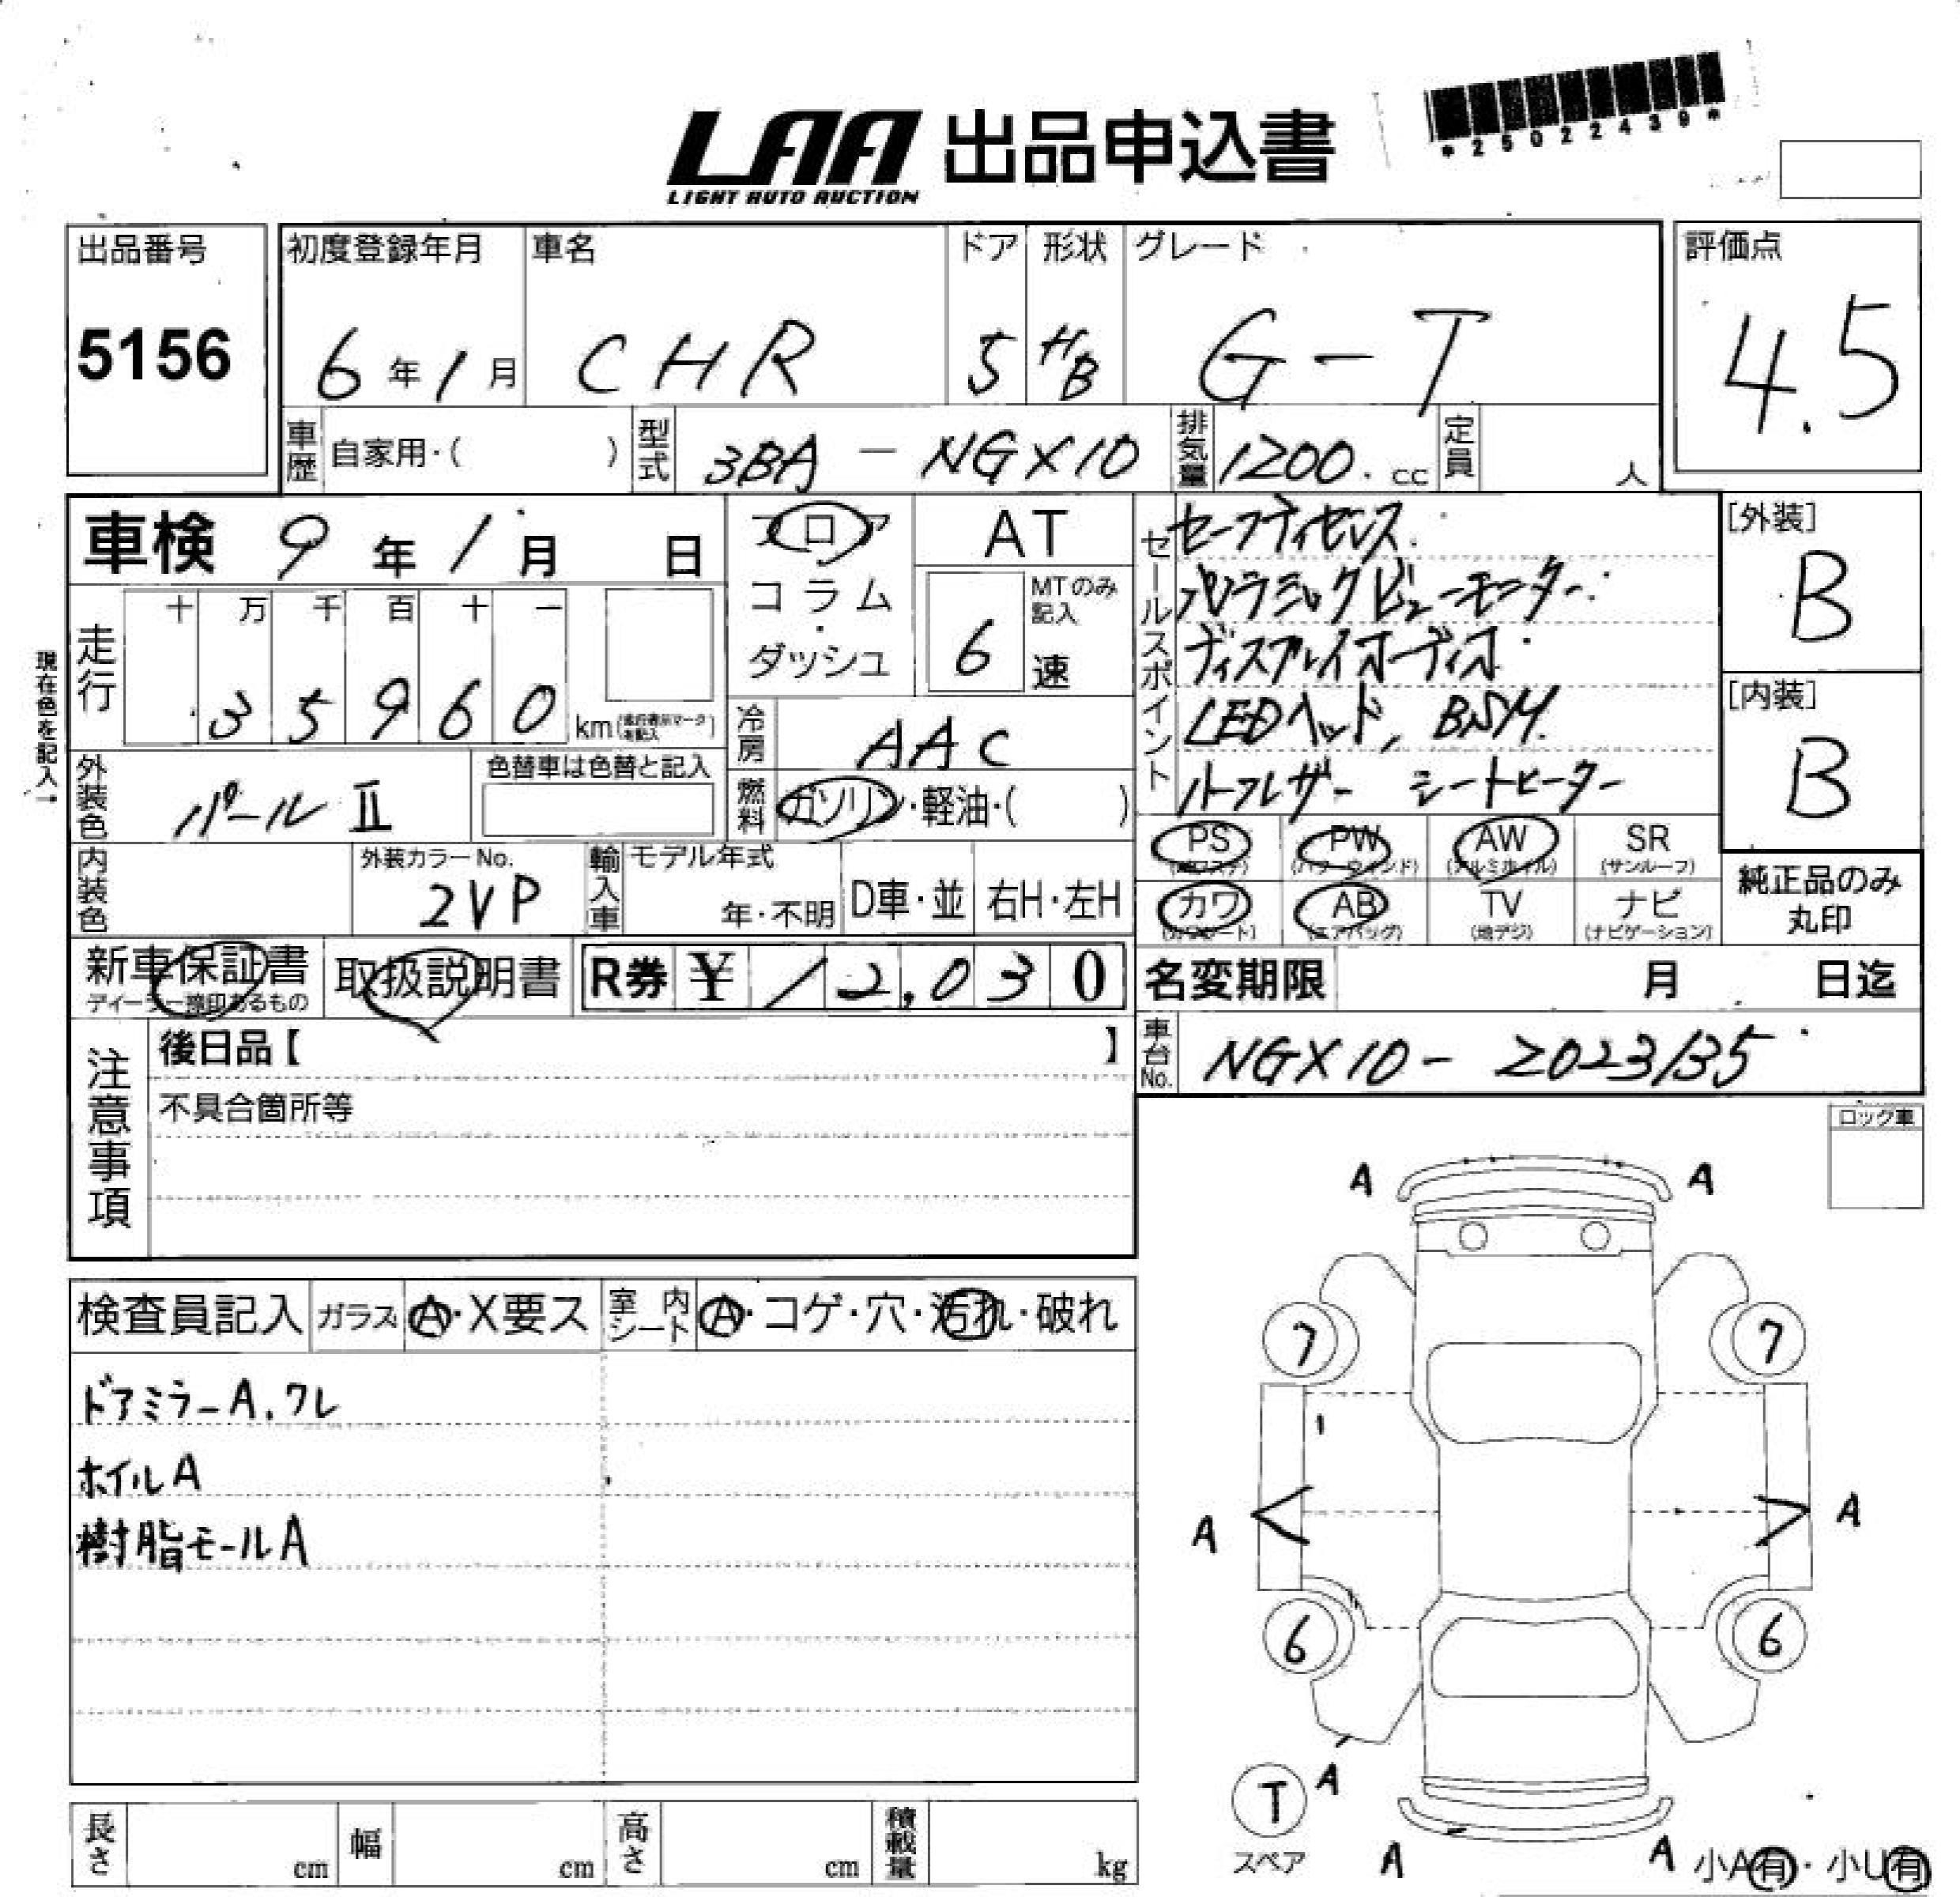 LAA 出品申込書
LIGHT AUTO AUCTION
*25022439*
出品番号
5156
初度登録年月
6年1月
車名
CHR
ドア
5
形状
HB
グレード
G-T
評価点
4.5
車歴 自家用・( )
型式 3BA-NGX10
排気量 1200.cc
定員 人
車検 9年1月 日
フロア
コラム
・
ダッシュ
AT
MTのみ記入
6速
走行
十 万 千 百 十 一
35960 km
現在色を記入→
冷房 AAC
燃料 ガソリン・軽油・( )
外装色 パールⅡ
色替車は色替と記入
内装色
外装カラーNo.
2VP
輸入車 モデル年式
年・不明
D車・並
右H・左H
セールスポイント
セーフティセンス.
パノラミックビューモニター.
ディスプレイオーディオ.
LEDヘッド, BSM.
ハーフレザー シートヒーター
[外装]
B
[内装]
B
PS PW (パワーウィンド) AW (アルミホイル) SR (サンルーフ)
カワ AB (エアバッグ) TV (地デジ) ナビ (ナビゲーション)
純正品のみ
丸印
新車保証書
ディーラー捺印あるもの
取扱説明書
R券 ¥12,030
名変期限 月 日迄
車台No. NGX10-2023135
注意事項
後日品【 】
不具合箇所等
ロック車
検査員記入
ガラス A・X要ス
室内シート A・コゲ・穴・汚れ・破れ
ドアミラーA.ワレ
ホイルA
樹脂モールA
A A
7 7
A A
6 6
T A
スペア
A A
小A有・小U有
長さ cm
幅 cm
高さ cm
積載量 kg